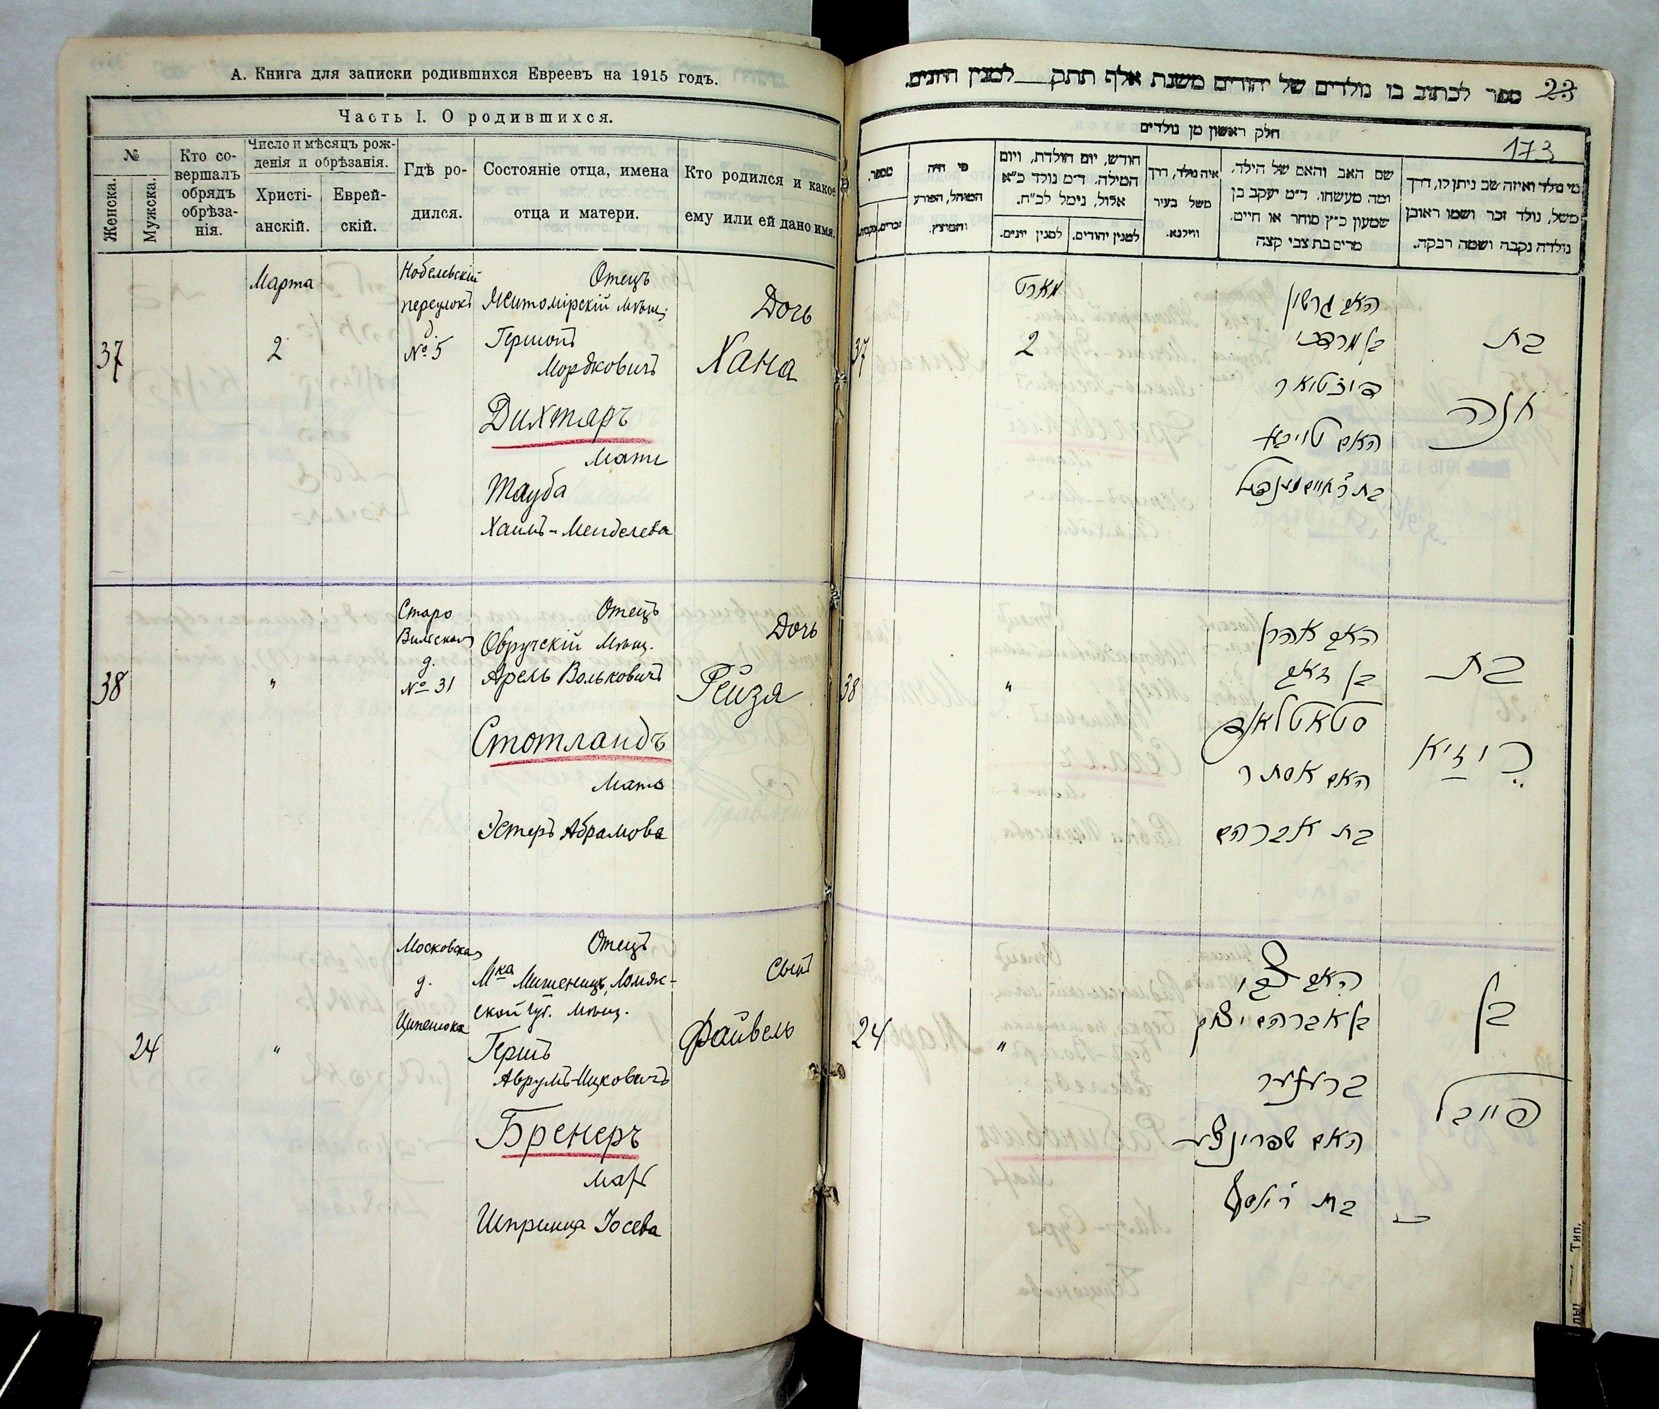 А. Книга для записки родившихся Евреевъ на 1915 годъ.
Часть I. О родившихся.
№
Женска.
Мужска.
Кто со-
вершалъ
обрядъ
обрѣза-
нія.
Число и мѣсяцъ рож-
денія и обрѣзанія.
Христі-
анскій.
Еврей-
скій.
Гдѣ ро-
дился.
Состояніе отца, имена
отца и матери.
Кто родился и какое
ему или ей дано имя.
37
Марта
2
Нобелевскій
переулокъ
д.
№ 5
Отецъ
Житомірскій мѣщ.
Гершонъ
Мордковичъ
Дихтяръ
Мать
Тауба
Хаимъ-Менделева
Дочь
Хана
38
"
Старо
Вильская
д.
№ 31
Отецъ
Овручскій Мѣщ.
Арель Вольковичъ
Стотландъ
Мать
Эстеръ Абрамова
Дочь
Рейза
24
"
Московская
д.
Отецъ
Мка Мышеницъ, Ломж-
ской губ. Мѣщ.
Гершъ
Аврумъ-Ицковичъ
Бренеръ
Мать
Шпринца Іосева
Сынъ
Файвель
ספר לכתוב בו נולדים של יהודים משנת אלף תתק למנין היונים.
23
173
חלק ראשון מן נולדים
מספר.
זכרים.
נקבות.
מי היה
המוהל, הפורע
והמוצץ.
חודש, יום הולדת, ויום
המילה. ד״מ נולד כ״א
אלול, נימל לכ״ח.
למנין יונים.
למנין יהודים.
איה נולד, דרך
משל בעיר
ווילנא.
שם האב והאם של הילד,
ומה מעשהו. ד״מ יעקב בן
שמעון כ״ץ סוחר או חיים.
מרים בת צבי קצה
מי נולד ואיזה שב ניתן לו, דרך
משל, נולד זכר ושמו ראובן
נולדה נקבה ושמה רבקה.
37
מארט
2
האב גרשון
בן מרדכי
דיכטיאר
האם טויבא
בת ר׳ חיים מענדיל
בת
חנה
38
"
האב אהרן
בן זאב
סטאטלאנד
האם אסתר
בת אברהם
בת
רייזא
24
"
האב צבי
בן אברהם יצחק
ברענער
האם שפרינצע
בת ר׳ יוסף
בן
פייבל
Тип.